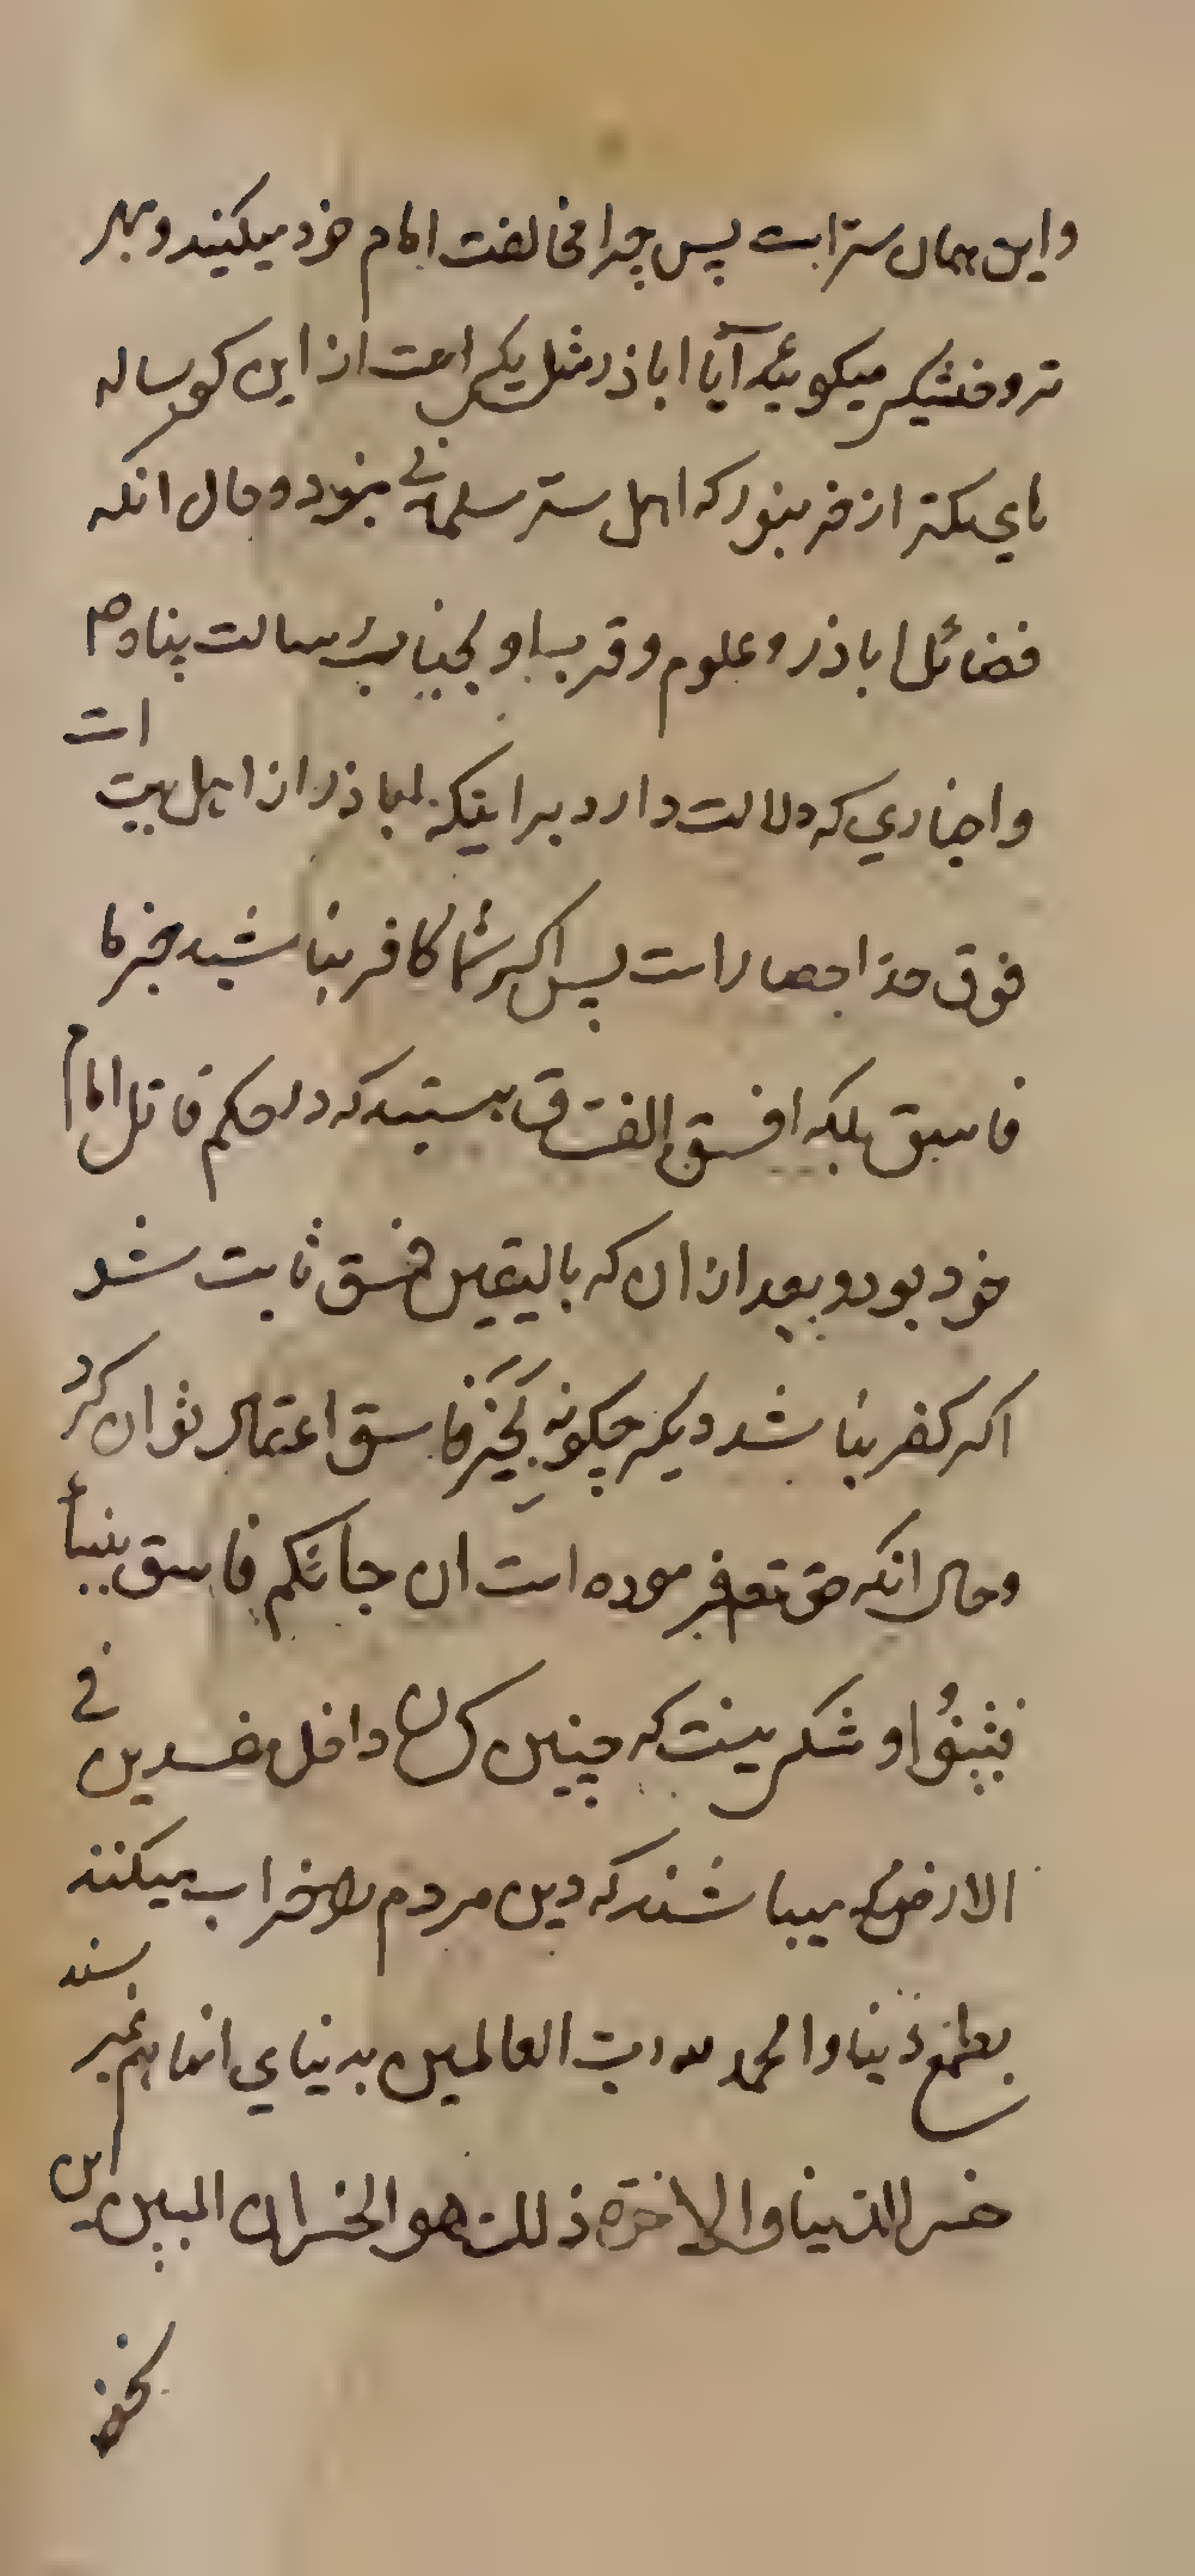 و این همان ستر است پس چرا مخالفت امام خود میکنید و بهر
تر و خشکی میکوئید آیا اباذر مثل یکی است از این کوساله
های کمتر از خر بنود که اهل ستر سلمانی بنود و حال انکه
فضائل اباذر و علوم و قرب او بجناب رسالت پناه ص
و اخباری که دلالت دارد بر اینکه اباذر از اهل بیت است
فوق حد احصار است پس اکر شما کافر نباشید مخبرها
فاسق بلکه افسق الفساق هستید که در حکم قاتل امام
خود بود و بعد از ان که بالیقین فسق ثابت شد
اکر کفر نباشد دیکر چکونه بخبر فاسق اعتماد توان کرد
و حال انکه حق تعم فرموده است ان جائکم فاسق بنبأ
فتبینؤا و شکی نیست که چنین کسان داخل مفسدین فی
الارض میباشند که دین مردم را خراب میکنند
بطمع دنیا و الحمد لله رب العالمین بدنیای انها هم نمیرسند
خسر الدنیا والاخرة ذلک هو الخسران المبین این
نحو